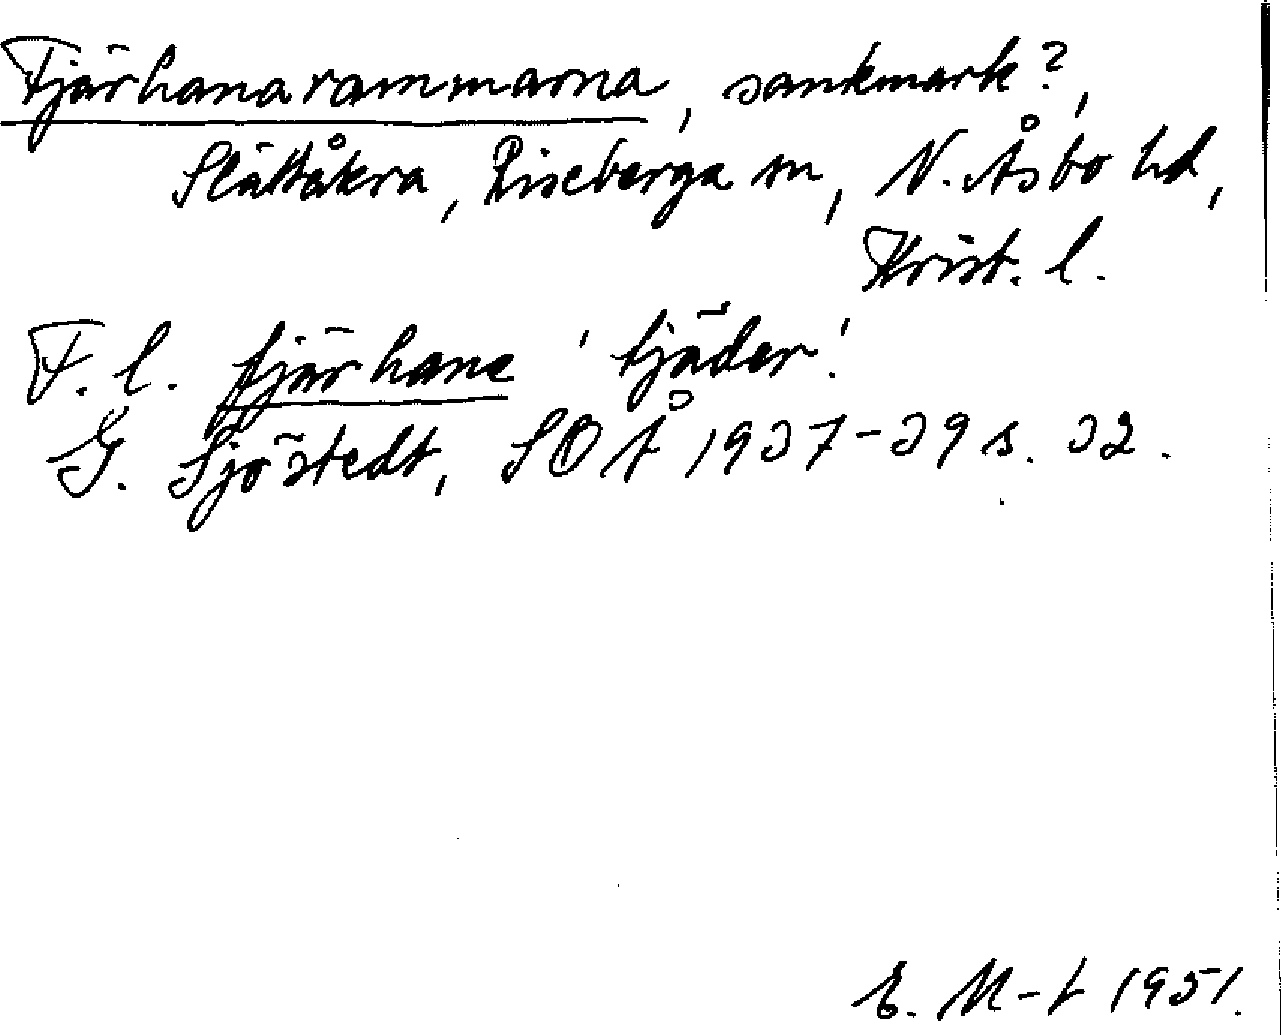 Fjärhanarammarna, sankmark?,
Slättåkra, Riseberga sn, N. Åsbo hd,
Krist. l.
F. l. fjärhane 'tjäder'.
G. Sjöstedt, SOÅ 1937-39 s. 32.
E. M-t 1951.